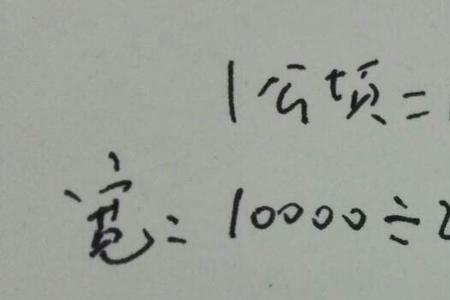 1公顷=
宽=10000÷2